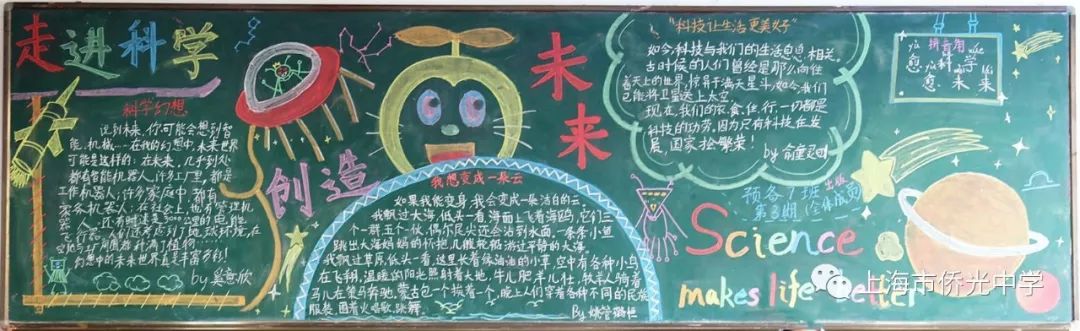 走进科学
创造
未来
科学幻想
说到未来,你可能会想到智
能,机械……在我的幻想中,未来世界
可能是这样的:在未来,几乎到处
都有智能机器人,许多工厂里,都是
工作机器人,许多家庭中,都有
by 奚意欣
我想变成一朵云
如果我能变身,我会变成一朵洁白的云。
我飘过大海,低头一看,海面上飞着海鸥,它们三
个一群,五个一伙,偶尔尾尖还会沾到水面,一条条小鱼
跳出大海妈妈的怀抱,几艘轮船游过平静的大海。
我飘过草原,低头一看,这里长着绿油油的小草,空中有各种小鸟
在飞翔,温暖的阳光照射着大地,牛儿肥,羊儿壮,牧羊人骑着
马儿在策马奔驰,蒙古包一个挨着一个,晚上人们穿着各种不同的民族
服装,围着火唱歌、跳舞。
By
"科技让生活更美好"
如今,科技与我们的生活息息相关,
古时候的人们曾经是那么向往
着天上的世界,惊异于满天星斗,如今,我们
已能将卫星送上太空。
现在,我们的衣、食、住、行,一切都是
科技的功劳,因为只有科技在发
展,国家才会繁荣!
by 俞
拼音角
yù kē xué
愈 科 学
愈 未 来
预备7班 出版
第3期 (全体版面)
Science
makes life better
上海市侨光中学